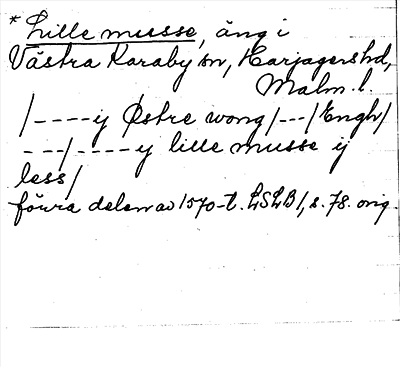 * Lille musse, äng i
Västra Karaby sn, Harjagers hd,
Malm. l.
/----ij Østre wong/---/Engh/
---/----ij lille musse ij
less/
förra delen av 1570-t. LSLB1, s. 78. orig.